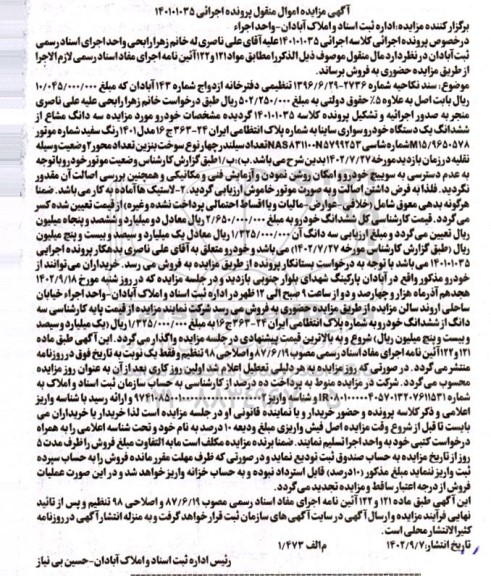 آگهی مزایده اموال منقول پرونده اجرائی ۱۴۰۱۰۱۰۳۵
برگزار کننده مزایده: اداره ثبت اسناد و املاک آبادان - واحد اجراء
درخصوص پرونده اجرائی کلاسه اجرائی ۱۴۰۱۰۱۰۳۵ علیه آقای علی ناصری له خانم زهرا رابحی واحد اجرای اسناد رسمی
ثبت آبادان در نظر دارد مال منقول موصوف ذیل الذکر را مطابق مواد ۱۲۱ و ۱۲۲ آئین نامه اجرای مفاد اسناد رسمی لازم الاجرا
از طریق مزایده حضوری به فروش برساند.
موضوع: سند نکاحیه شماره ۲۷۳۶-۱۳۹۶/۶/۲۹ تنظیمی دفترخانه ازدواج شماره ۱۴۳ آبادان که مبلغ ۱۰/۰۴۵/۰۰۰/۰۰۰
ریال بابت اصل به علاوه ۵٪ حقوق دولتی به مبلغ ۵۰۲/۲۵۰/۰۰۰ ریال طبق درخواست خانم زهرا رابحی علیه علی ناصری
منجر به صدور اجرائیه و تشکیل پرونده کلاسه ۱۴۰۱۰۱۰۳۵ گردیده مشخصات خودرو مورد مزایده سه دانگ مشاع از
ششدانگ یک دستگاه خودرو سواری ساینا به شماره پلاک انتظامی ایران ۲۴-۳۶۳ ج ۱۶ مدل ۱۴۰۱ رنگ سفید شماره موتور
M15/9650578 شماره شاسی NAS831100N5799253 تعداد سیلندر چهار نوع سوخت بنزین تعداد محور ۲ وضعیت وسیله
نقلیه در زمان بازدید مورخه ۱۴۰۲/۷/۲۷ بدین شرح می باشد. ب) ب/۱ طبق گزارش کارشناس وضعیت موتور خودرو با توجه
به عدم دسترسی به سوییچ خودرو امکان روشن نمودن و آزمایش فنی و مکانیکی و همچنین بررسی اصالت آن مقدور
نگردید. فلذا به فرض داشتن اصالت و به صورت موتور خاموش ارزیابی گردید. ۲- لاستیک ها آماده به کار می باشد. ضمنا
هرگونه بدهی معوق شامل (خلافی - عوارض - مالیات و یا اقساط احتمالی پرداخت نشده و غیره) از قیمت تعیین شده کسر
می گردد. قیمت کارشناسی کل ششدانگ خودرو به مبلغ ۲/۶۵۰/۰۰۰/۰۰۰ ریال معادل دو میلیارد و ششصد و پنجاه میلیون
ریال تعیین می گردد و مبلغ ارزیابی سه دانگ آن ۱/۳۲۵/۰۰۰/۰۰۰ ریال معادل یک میلیارد و سیصد و بیست و پنج میلیون
ریال (طبق گزارش کارشناس مورخه ۱۴۰۲/۷/۲۷) می باشد و خودرو متعلق به آقای علی ناصری بدهکار پرونده اجرایی
۱۴۰۱۰۱۰۳۵ می باشد با توجه به درخواست بستانکار پرونده از طریق مزایده به فروش می رسد. خریداران می توانند از
خودرو مذکور واقع در آبادان پارکینگ شهدای بلوار جنوبی بازدید و در جلسه مزایده که در روز شنبه مورخ ۱۴۰۲/۹/۱۸
هجدهم آذرماه هزار و چهارصد و دو از ساعت ۹ صبح الی ۱۲ ظهر در اداره ثبت اسناد و املاک آبادان - واحد اجراء خیابان
ساحلی اروند سالن مزایده از طریق مزایده حضوری به فروش می رسد شرکت نمایند مزایده از قیمت پایه کارشناسی سه
دانگ از ششدانگ خودرو به شماره پلاک انتظامی ایران ۲۴-۳۶۳ ج ۱۶ به مبلغ ۱/۳۲۵/۰۰۰/۰۰۰ ریال (یک میلیارد و سیصد
و بیست و پنج میلیون ریال) شروع و به بالاترین قیمت پیشنهادی در جلسه مزایده واگذار می گردد. این آگهی طبق ماده
۱۲۱ و ۱۲۲ آئین نامه اجرای مفاد اسناد رسمی مصوب ۸۷/۶/۱۹ و اصلاحی ۹۸ تنظیم و فقط یک نوبت به تاریخ فوق در روزنامه
منتشر می گردد. در صورتی که روز مزایده به هر دلیلی تعطیل اعلام شد اولین روز کاری بعد از آن به عنوان روز مزایده
محسوب می گردد. شرکت در مزایده منوط به پرداخت ده درصد از کارشناسی به حساب سازمان ثبت اسناد و املاک به
و شناسه واریز ارائه رسید با شناسه واریز
اعلامی و ذکر کلاسه پرونده و حضور خریدار و یا نماینده قانونی او در جلسه مزایده است لذا خریدار یا خریداران می
بایست تا قبل از شروع وقت مزایده اصل فیش واریزی مبلغ ودیعه ۱۰ درصد به نام خود و تحت شناسه اعلامی را به همراه
درخواست کتبی خود به واحد اجرا تسلیم نمایند. ضمنا برنده مزایده مکلف است مابه التفاوت مبلغ فروش را ظرف مدت ۵
روز از تاریخ مزایده به حساب صندوق ثبت تودیع نماید و در صورتی که ظرف مهلت مقرر مانده فروش را به حساب سپرده
ثبت واریز ننماید مبلغ مذکور (۱۰ درصد) قابل استرداد نبوده و به حساب خزانه واریز خواهد شد و در این صورت عملیات
فروش از درجه اعتبار ساقط و مزایده تجدید می گردد.
این آگهی طبق ماده ۱۲۱ و ۱۲۲ آئین نامه اجرای مفاد اسناد رسمی مصوب ۸۷/۶/۱۹ و اصلاحی ۹۸ تنظیم و پس از تائید
نهایی فرآیند مزایده و ارسال آگهی در سایت آگهی های سازمان ثبت قرار خواهد گرفت و به منزله انتشار آگهی در روزنامه
کثیرالانتشار محلی است.
تاریخ انتشار: ۱۴۰۲/۹/۷ م الف ۱/۴۷۳
رئیس اداره ثبت اسناد و املاک آبادان - حسین بی نیاز